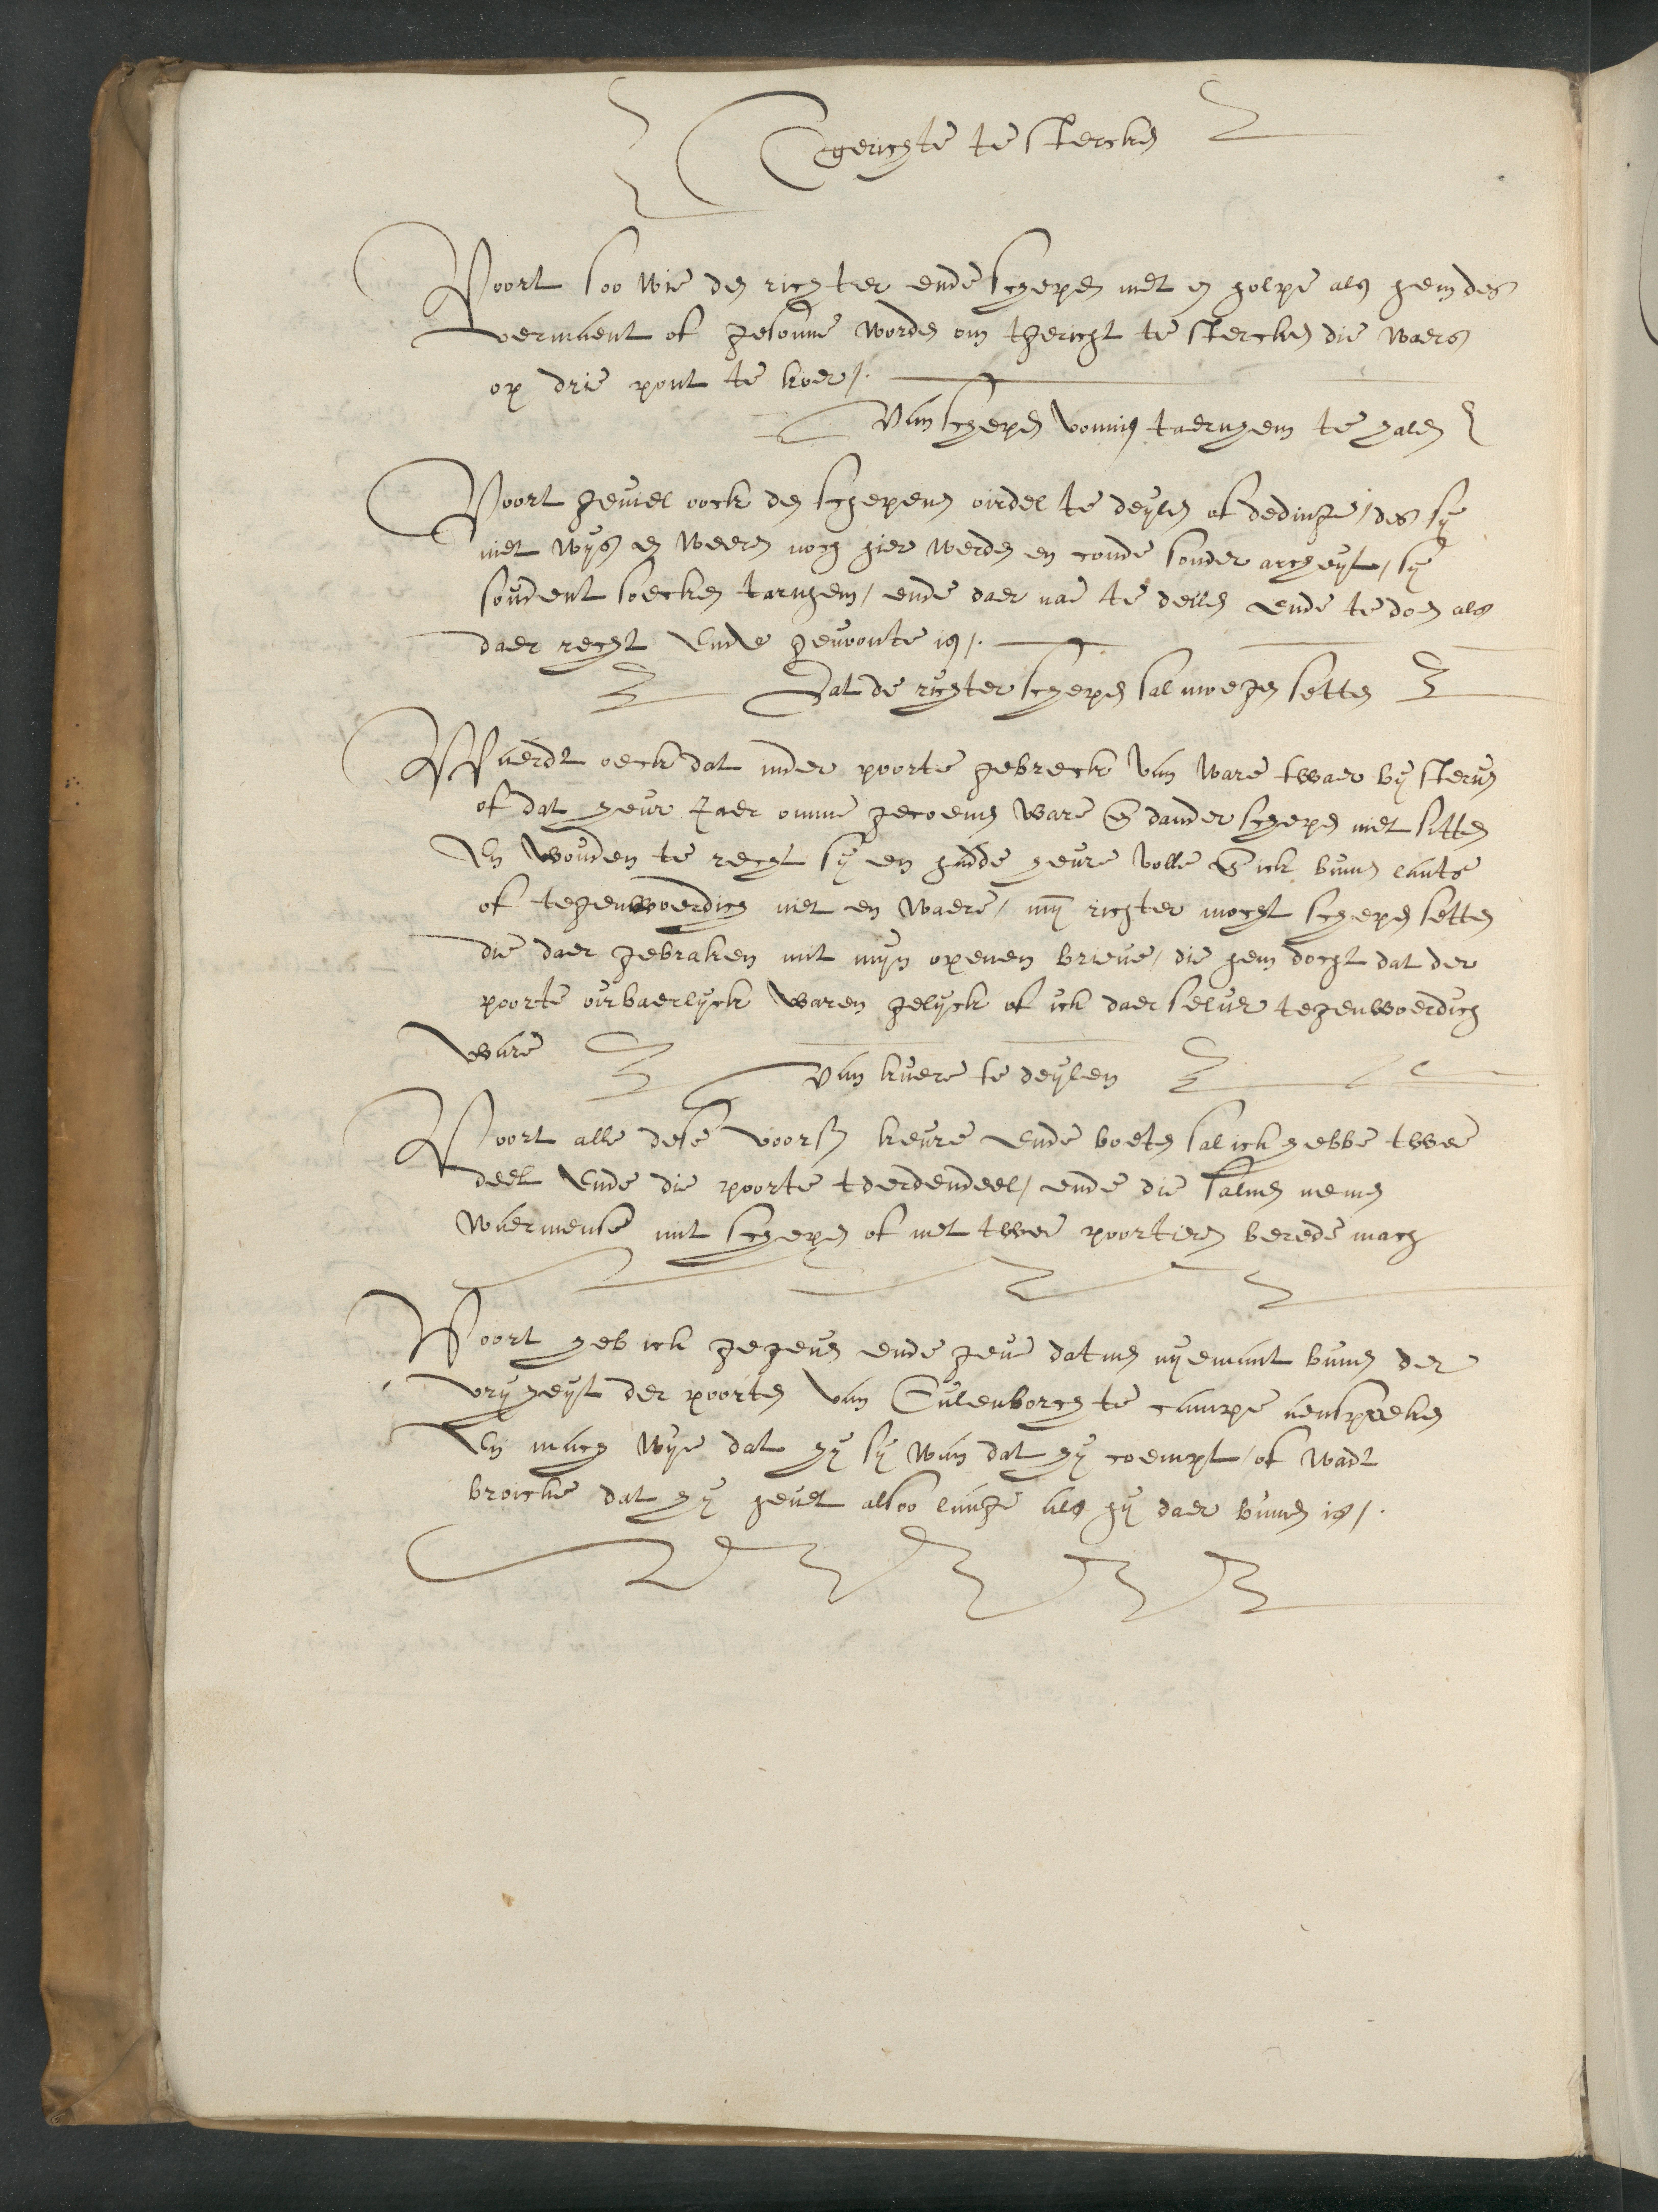 Tgerichte te stercken
Voort soo wie den richter ende schepen niet en holpe als hem des
vermaent of gesonne worden om tgericht te stercken die waers
op drie pont te koer /.
Van schepen vonnis taernhem te halen
Voort geviel oock den schepenen oirdel te deylen of dedinge / des sy
niet wys en weeren noch hier werden en conde sonder archeyt / sy
soudent soecken tarnhem / ende daer nae te deilen ende te doen als
daer recht ende gewoonte is /.
Dat de richter schepen sal moegen setten
Waerdt oeck dat inder poorte gebreck van ware twaer by sterven
of dat heur Jaer omme gecoemen ware en dander schepen niet sitten
En wouden te recht sy en hadde heure volle en ick binnen lants
of tegenwoerdich niet en waere / myn richter mocht schepen setten
die daer gebraken mit mijn openen brieve / die hem docht dat der
poorte oirbaerlyck waren gelyck of ick daer selver tegenwoerdich
ware
Van kuere te deylen
Voort alle dese voors. keure ende boeten sal ick hebbe twee
deel ende die poorte tderdendeel / ende die salmen nemen
waermense mit schepen of met twee poorteren berede mach
Voort heb ick gegeven ende geve datmen nyemant binnen der
vryheyt der poorten van Culenborch te campe aenspreken
En mach wye dat hy sy wan dat hy coempt / of wadt
broicke dat hy hevet alsoo lange als hy daer binnen is /.